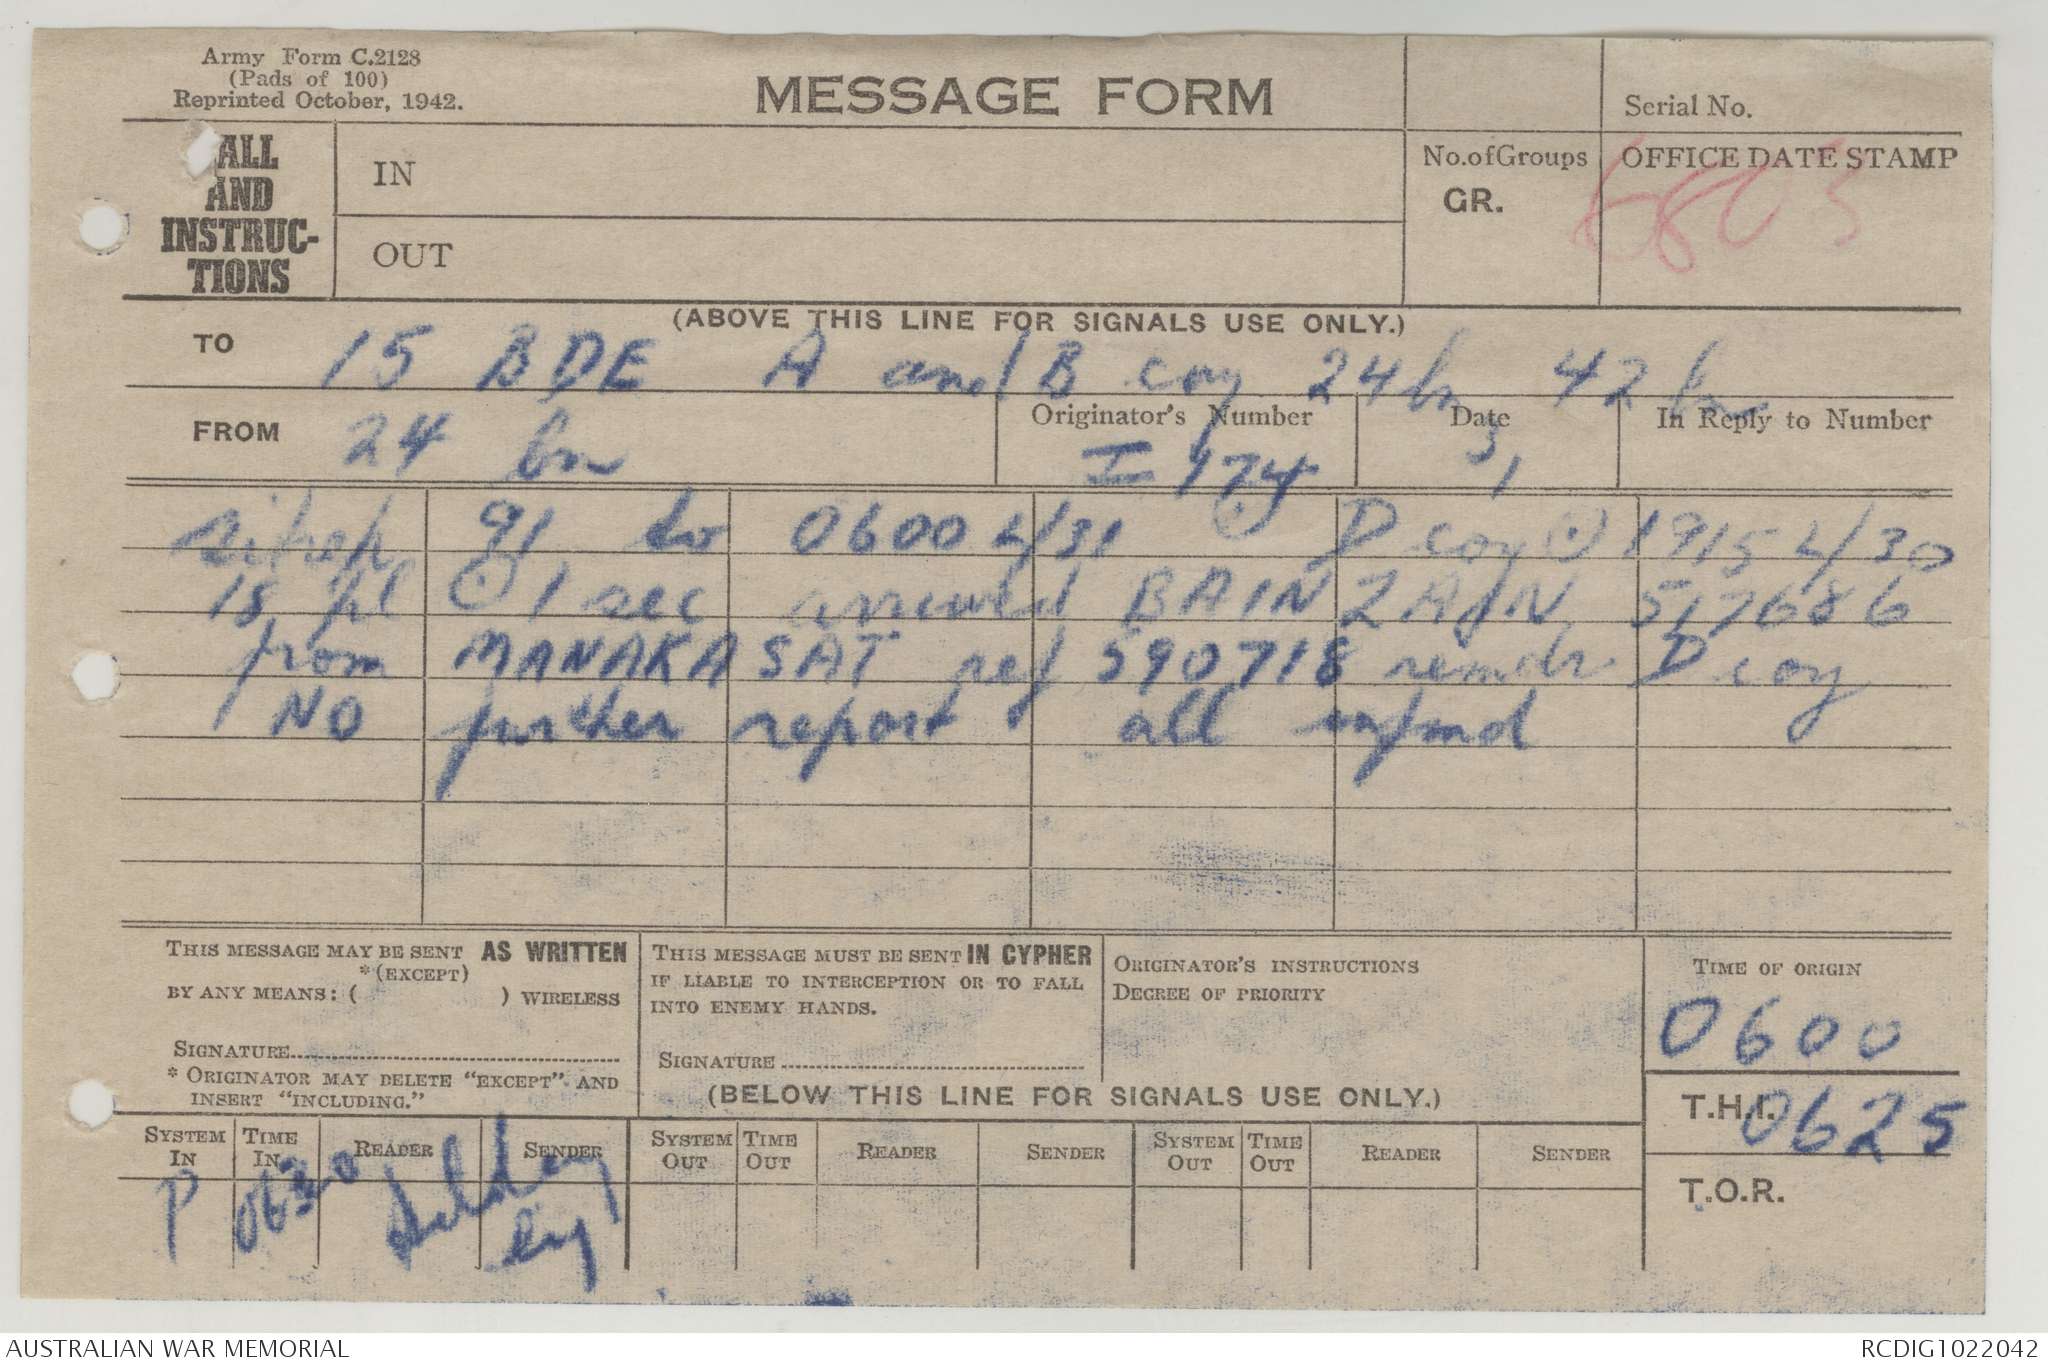 Army Form C.2128
(Pads of 100)
Reprinted October, 1942.
MESSAGE FORM
Serial No.
ALL
AND
INSTRUC-
TIONS
IN
OUT
No. of Groups
GR.
OFFICE DATE STAMP
(ABOVE THIS LINE FOR SIGNALS USE ONLY.)
TO 15 BDE A and B coy 24 bn 42 bn
FROM 24 bn
Originator's Number I 174
Date 31
In Reply to Number
sitrep 91 to 0600 L/31 ⊙ D coy ⊙ 1915 L/30
18 pl ⊙ 1 sec arrived BAINZAIN 517686
from MANAKASAT ref 590718 remdr D coy
NO further report all infmd
THIS MESSAGE MAY BE SENT AS WRITTEN
*(EXCEPT)
BY ANY MEANS: ( ) WIRELESS
SIGNATURE
* ORIGINATOR MAY DELETE "EXCEPT" AND
INSERT "INCLUDING."
THIS MESSAGE MUST BE SENT IN CYPHER
IF LIABLE TO INTERCEPTION OR TO FALL
INTO ENEMY HANDS.
SIGNATURE
ORIGINATOR'S INSTRUCTIONS
DEGREE OF PRIORITY
TIME OF ORIGIN
0600
(BELOW THIS LINE FOR SIGNALS USE ONLY.)
T.H.I. 0625
T.O.R.
SYSTEM IN TIME IN READER SENDER SYSTEM OUT TIME OUT READER SENDER SYSTEM OUT TIME OUT READER SENDER
P 0630
AUSTRALIAN WAR MEMORIAL
RCDIG1022042